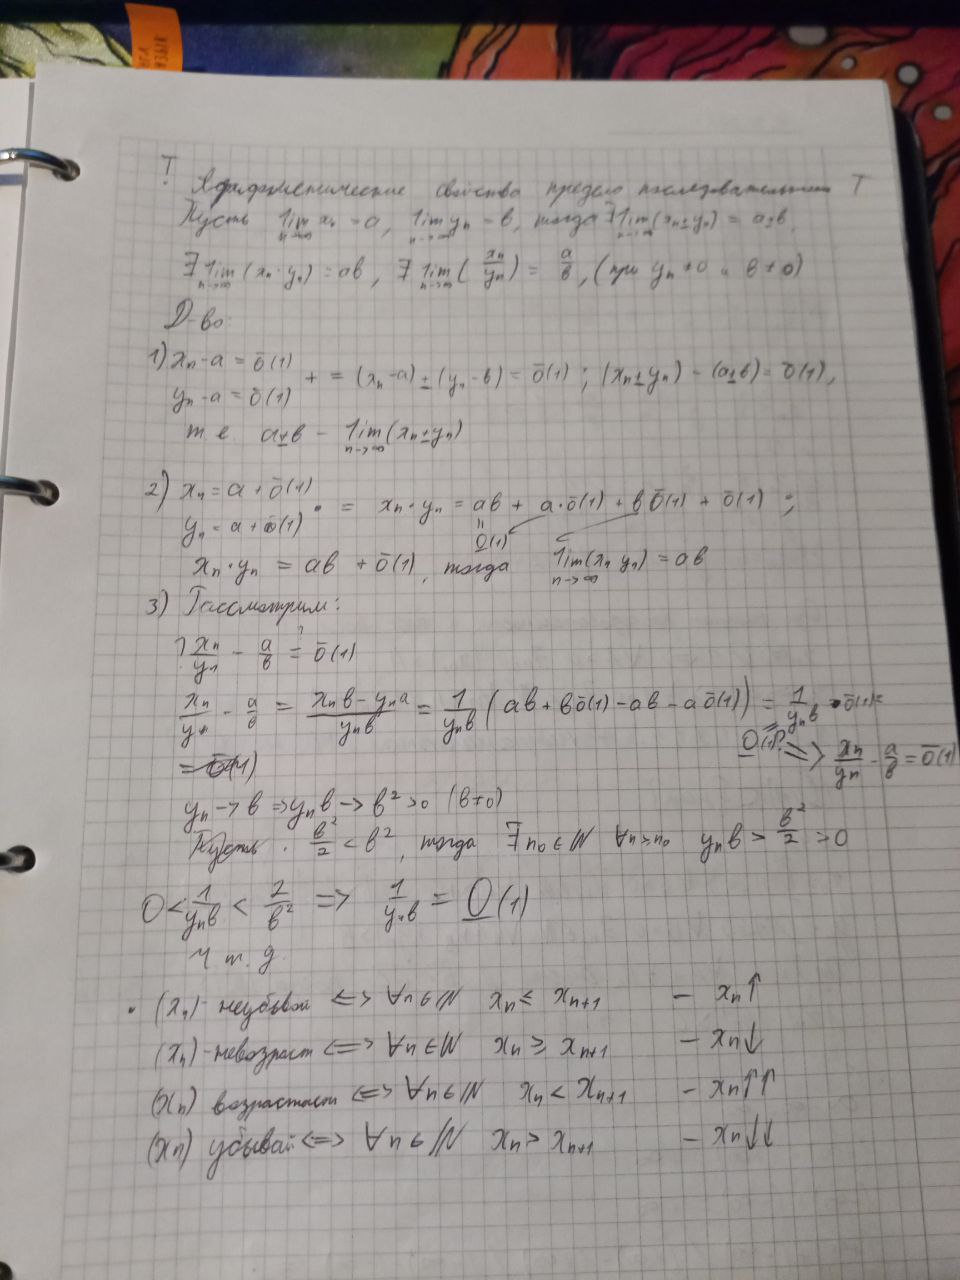 T Арифметические свойства предела последовательности T
Пусть lim n→∞ xₙ = a, lim n→∞ yₙ = b, тогда ∃ lim n→∞ (xₙ ± yₙ) = a±b,
∃ lim n→∞ (xₙ·yₙ) = ab, ∃ lim n→∞ (xₙ/yₙ) = a/b, (при yₙ ≠ 0 и b ≠ 0)
Д-во:
1) xₙ - a = ō(1)
yₙ - a = ō(1) + = (xₙ - a) ± (yₙ - b) = ō(1) ; (xₙ ± yₙ) - (a±b) = ō(1),
т.е. a±b - lim n→∞ (xₙ ± yₙ)
2) xₙ = a + ō(1)
yₙ = a + ō(1) · = xₙ·yₙ = ab + a·ō(1) + b ō(1) + ō(1) ;
ō(1)
xₙ·yₙ = ab + ō(1), тогда lim n→∞ (xₙ yₙ) = ab
3) Рассмотрим:
? xₙ/yₙ - a/b = ō(1)
xₙ/yₙ - a/b = (xₙb - yₙa)/(yₙb) = 1/(yₙb) (ab + bō(1) - ab - aō(1)) = 1/(yₙb) · ō(1) =
O(1)? => xₙ/yₙ - a/b = ō(1)
= ō(1)
yₙ → b => yₙb → b² > 0 (b≠0)
Пусть . b²/2 < b², тогда ∃ n₀ ∈ N ∀n>n₀ yₙb > b²/2 > 0
0 < 1/(yₙb) < 2/b² => 1/(yₙb) = O(1)
ч.т.д.
• (xₙ) - неубывай <=> ∀n∈N xₙ ≤ xₙ₊₁ - xₙ↑
(xₙ) - невозраст <=> ∀n∈N xₙ ≥ xₙ₊₁ - xₙ↓
(xₙ) возрастает <=> ∀n∈N xₙ < xₙ₊₁ - xₙ↑↑
(xₙ) убывай <=> ∀n∈N xₙ > xₙ₊₁ - xₙ↓↓